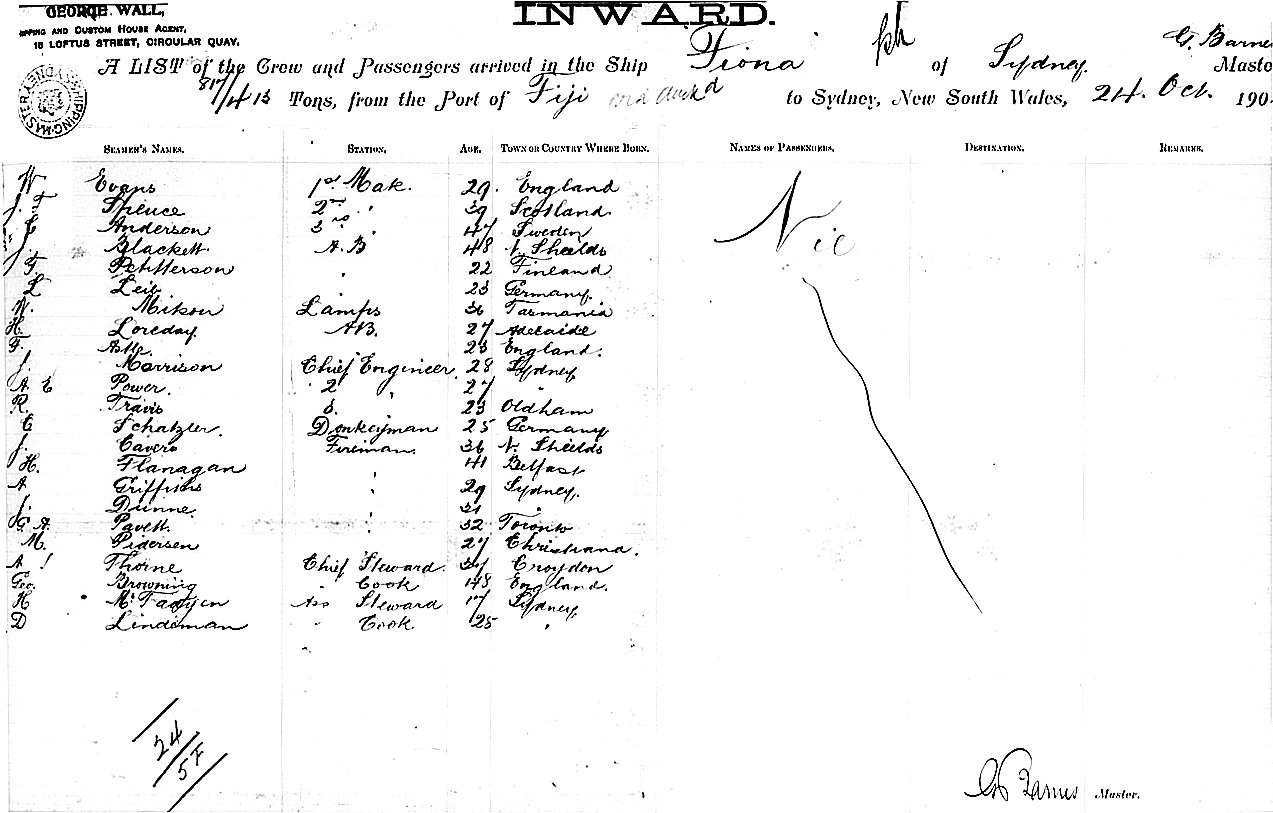 GEORGE WALL,
SHIPPING AND CUSTOM HOUSE AGENT,
16 LOFTUS STREET, CIRCULAR QUAY.
INWARD.
G. Barne
A LIST of the Crew and Passengers arrived in the Ship Fiona of Sydney. Maste
817/413 Tons, from the Port of Fiji and Auckd to Sydney, New South Wales, 24. Oct. 190
SHIPPING MASTER SYDNEY
SEAMEN'S NAMES. STATION. AGE. TOWN OR COUNTRY WHERE BORN. NAMES OF PASSENGERS. DESTINATION. REMARKS.
W Evans 1st Mate. 29. England
J. F Spence 2nd " 39 Scotland
C Anderson 3rd " 47 Sweden
J. Blackett A.B 48 N. Shields
F. Pettterson " 22 Finland
L Leib " 23 Germany.
W. Mikson Lamps 36 Tasmania
H. Loveday. AB. 27 Adelaide
F. 23 England.
J. Morrison Chief Engineer 28 Sydney
A E Power. 2 " 27 "
R. Travis 3. 23 Oldham
C Schatzler. Donkeyman 25 Germany
J. Cavers Fireman. 36 N. Shields
H. Flanagan " 41 Belfast
A. Griffiths " 29 Sydney.
J. Dunne " 31 "
G. A. Pavett. " 32 Toronto
M. Pidersen 27 Christiana.
A J Thorne Chief Steward. 37 Croydon
Geo. Browning " Cook 48 England.
H McFadyen Ass Steward 17 Sydney
D Lindeman " Cook. 25 "
Nil
24/57
G Barnes Master.